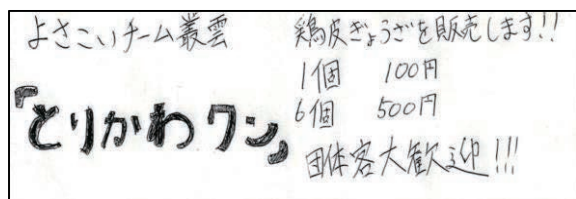 よさこいチーム叢雲
『とりかわワン』
鶏皮ぎょうざを販売します!!
1個 100円
6個 500円
団体客大歓迎!!!